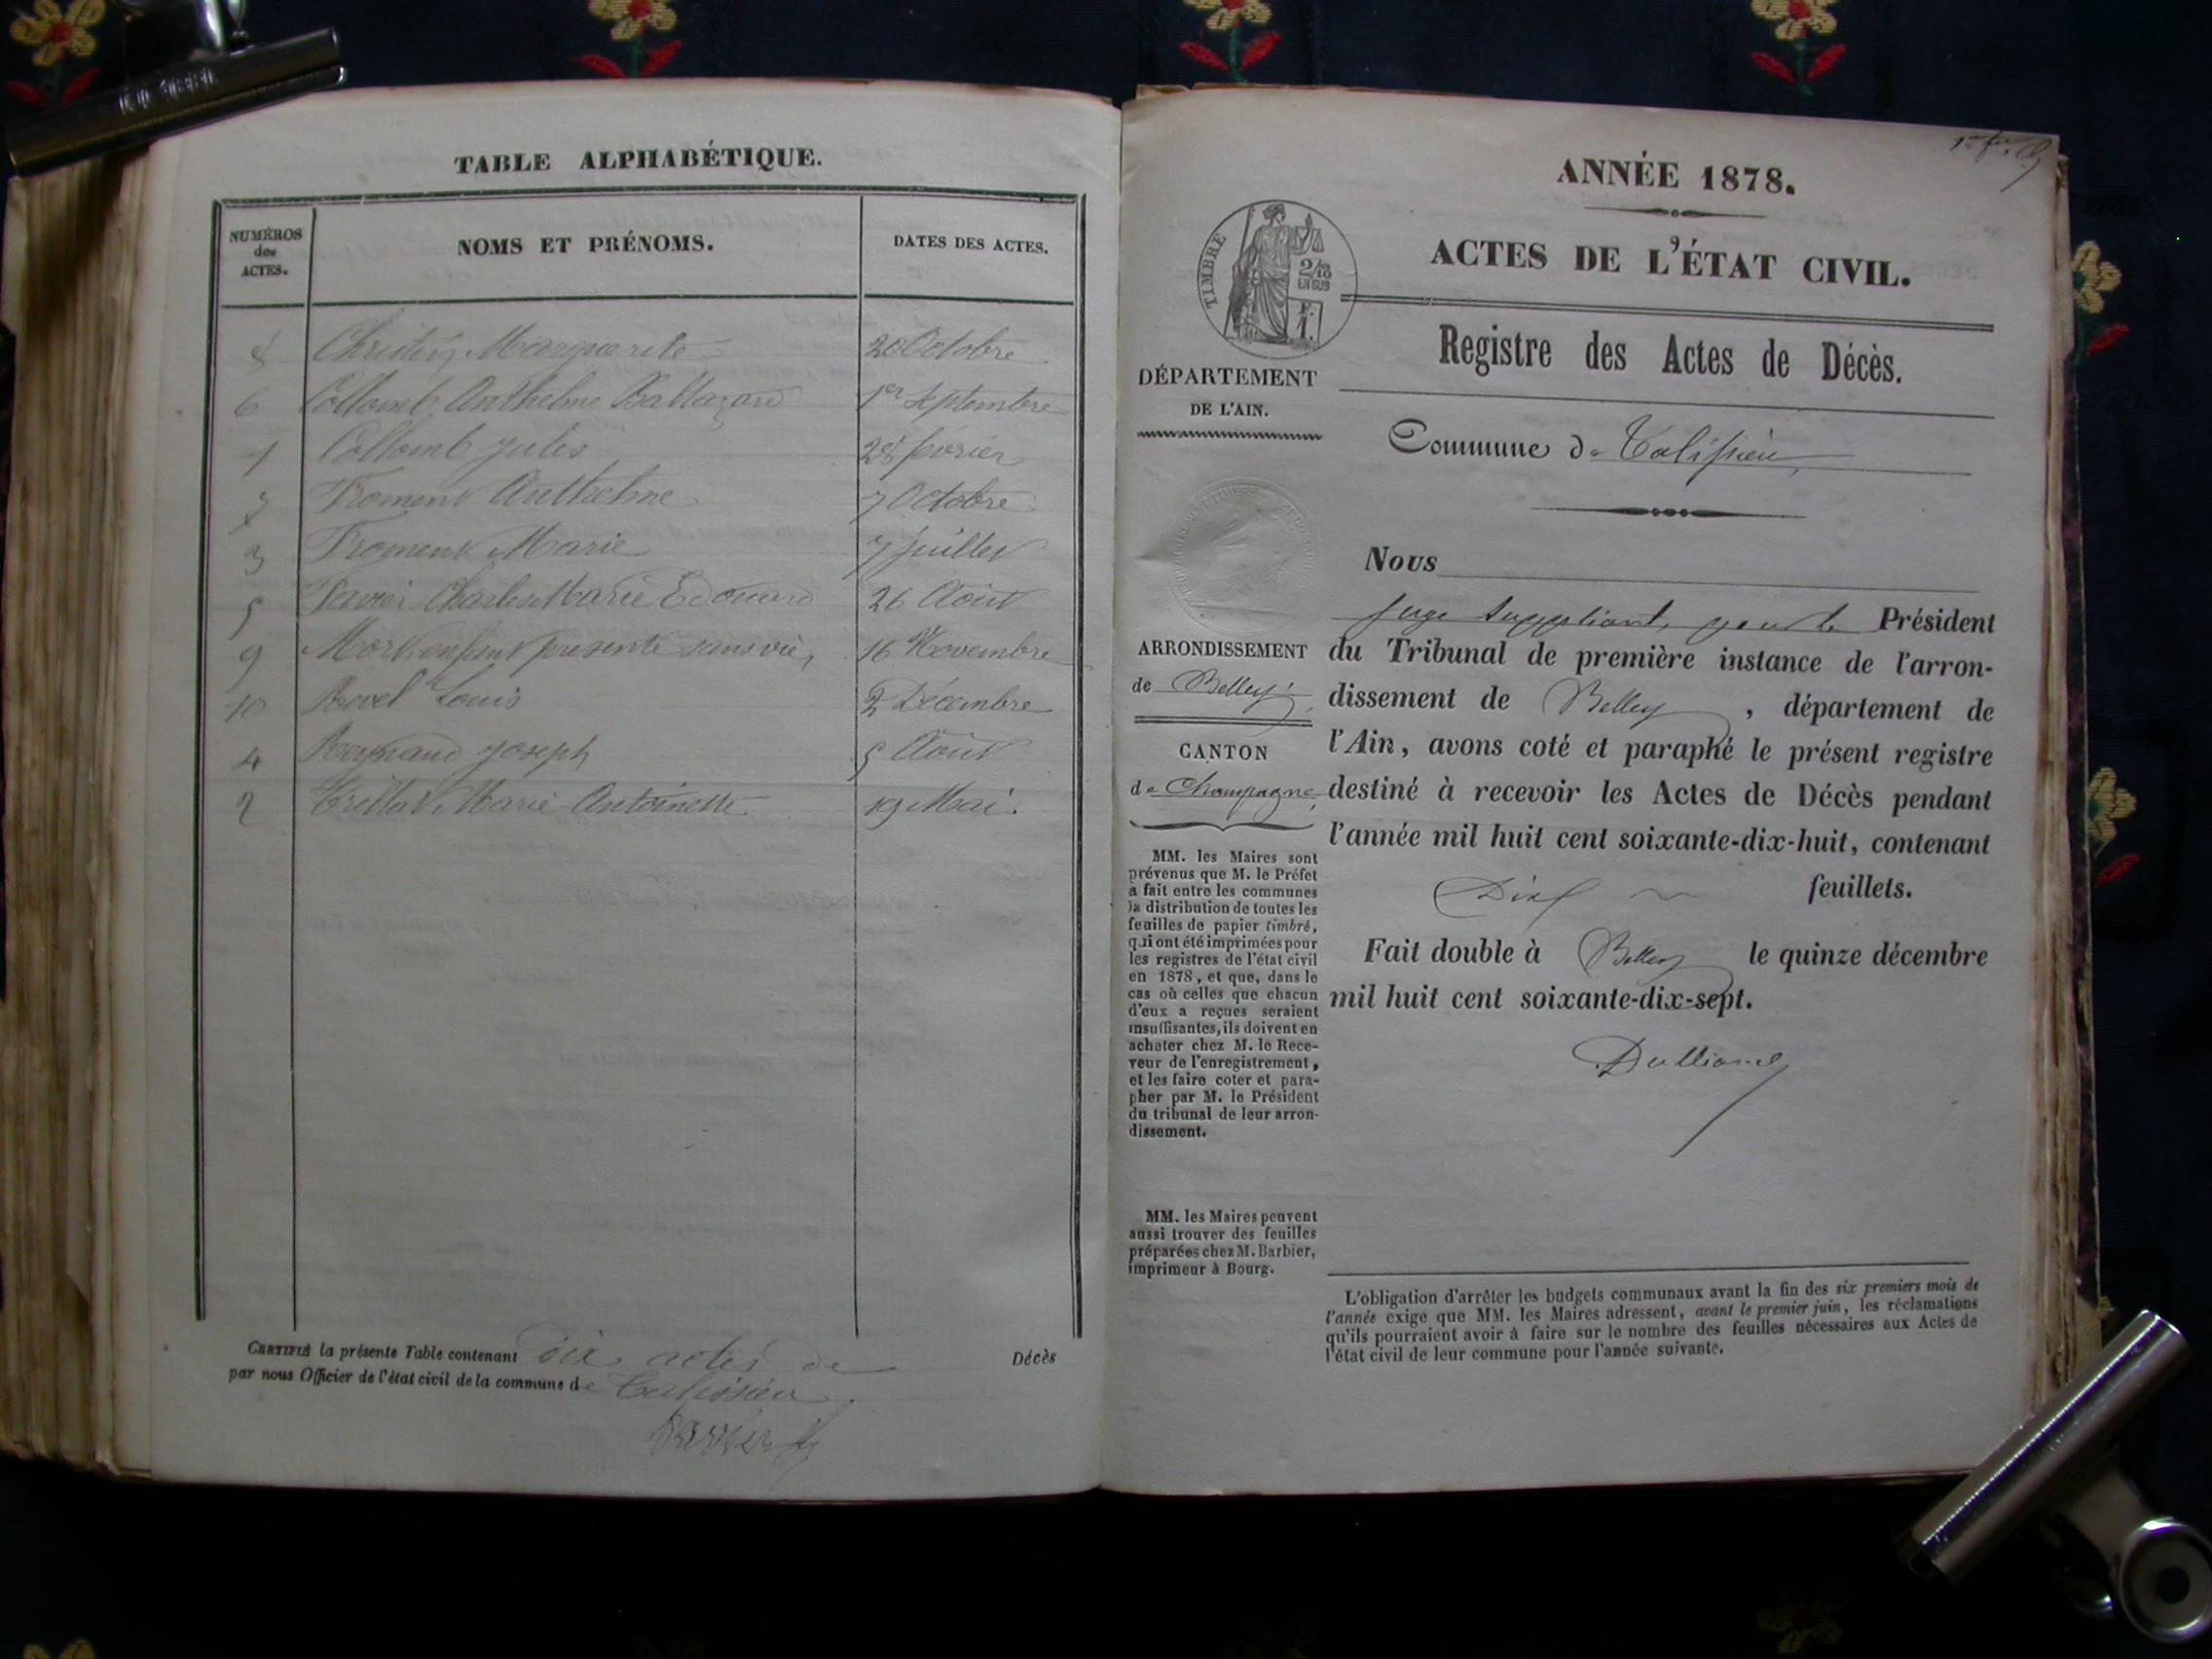 TABLE ALPHABÉTIQUE.
NUMÉROS
des
ACTES.
NOMS ET PRÉNOMS.
DATES DES ACTES.
8 Marguerite 20 Octobre
6 Collomb Anthelme Baltazard 1er Septembre
1 Collomb Jules 28 fevrier
7 Froment Anthelme 7 Octobre
3 Froment Marie 7 juillet
5 Charles Marie Edouard 26 Août
9 Mort enfant presenté sans vie, 16 Novembre
10 Louis 2 Décembre
4 Reynaud Joseph 5 Août
2 Marie Antoinette 19 Mai.
CERTIFIÉ la présente Table contenant dix actes de Décès
par nous Officier de l'état civil de la commune de Talissieu
ANNÉE 1878.
ACTES DE L'ÉTAT CIVIL.
TIMBRE
2/10
EN SUS
F.
1.
Registre des Actes de Décès.
DÉPARTEMENT
DE L'AIN.
Commune de Talissieu,
Nous
Juge suppléant, pour le Président
du Tribunal de première instance de l'arron-
dissement de Belley, département de
l'Ain, avons coté et paraphé le présent registre
destiné à recevoir les Actes de Décès pendant
l'année mil huit cent soixante-dix-huit, contenant
Dix feuillets.
Fait double à Belley le quinze décembre
mil huit cent soixante-dix-sept.
ARRONDISSEMENT
de Belley,
CANTON
de Champagne,
MM. les Maires sont
prévenus que M. le Préfet
a fait entre les communes
la distribution de toutes les
feuilles de papier timbré,
qui ont été imprimées pour
les registres de l'état civil
en 1878, et que, dans le
cas où celles que chacun
d'eux a reçues seraient
insuffisantes, ils doivent en
acheter chez M. le Rece-
veur de l'enregistrement,
et les faire coter et para-
pher par M. le Président
du tribunal de leur arron-
dissement.
MM. les Maires peuvent
aussi trouver des feuilles
préparées chez M. Barbier,
imprimeur à Bourg.
L'obligation d'arrêter les budgets communaux avant la fin des six premiers mois de
l'année exige que MM. les Maires adressent, avant le premier juin, les réclamations
qu'ils pourraient avoir à faire sur le nombre des feuilles nécessaires aux Actes de
l'état civil de leur commune pour l'année suivante.